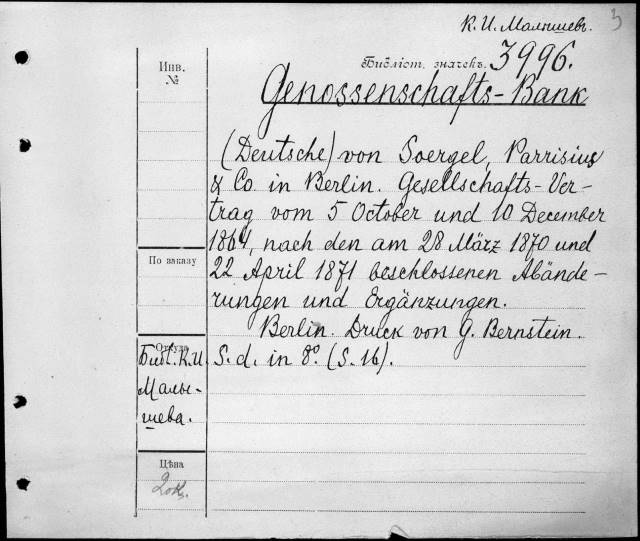 3
К. И. Малышевъ.
Инв. №
Библіот. значекъ. 3996.
Genossenschafts-Bank
(Deutsche) von Soergel, Parrisius
& Co. in Berlin. Gesellschafts-Ver-
trag vom 5 October und 10 December
1864, nach den am 28 März 1870 und
По заказу
22 April 1871 beschlossenen Abände-
rungen und Ergänzungen.
Berlin. Druck von G. Bernstein.
Откуда
Библ. К. И. Малы-
шева.
S. d. in 8º. (S. 16).
Цѣна